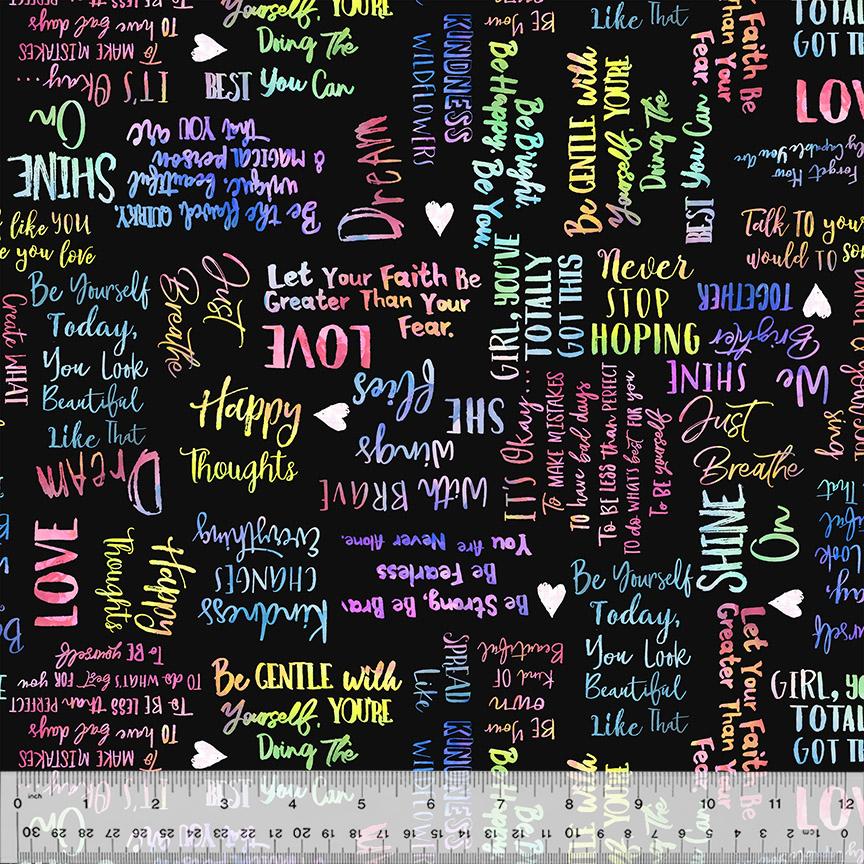 Yourself, YOU'RE
Doing The
BEST You Can
To have bad days
To MAKE MISTAKES
IT'S Okay...
WILDFLOWERS
KINDNESS
BE Your
Like That
Faith Be
Than Your
Fear.
TOTAL
GOT TH
LOV
On
SHINE
Be the flawed, QUIRKY,
unique, beautiful
& MAGICAL person
that YOU are
DREAM
Be Bright.
Be Happy. Be You.
Be GENTLE with
Yourself, YOU'RE
Doing The
BEST You Can
Forget How
You Are
Talk TO your
would TO so
like YOU
e you love
Create WHAT
Be Yourself
Today,
You Look
Beautiful
Like That
Just
Breathe
Let Your Faith Be
Greater Than Your
Fear.
LOVE
GIRL, YOU'VE
TOTALLY
GOT THIS
Never
STOP
HOPING
We
SHINE
Brighter
TOGETHER
Happy
Thoughts
SHE
flies
With BRAVE
Wings
IT'S Okay...
To MAKE MISTAKES
TO have bad days
To BE LESS than PERFECT
TO do WHAT'S best FOR you
To BE yourself
Just
Breathe
sing
DREAM
LOVE
Happy
Thoughts
Kindness
CHANGES
Everything
Be Strong, Be Bra
Be Fearless
You Are Never Alone.
SHINE
On
Be Yourself
Today,
You Look
Beautiful
Like That
Let Your Faith Be
Greater Than Your
Fear
To BE yourself
TO do WHAT'S best FOR you
To BE LESS than PERFECT
TO have bad days
To MAKE MISTAKES
IT'S Okay
Be GENTLE with
Yourself, YOU'RE
Doing The
BEST You Can
SPREAD KINDNESS
Like WILDFLOWERS
BE Your
own
Kind OF
Beautiful
GIRL, YO
TOTAL
GOT TH
LOV
On
0 inch 1 2 3 4 5 6 7 8 9 10 11 12
30 29 28 27 26 25 24 23 22 21 20 19 18 17 16 15 14 13 12 11 10 9 8 7 6 5 4 3 2 1cm 0